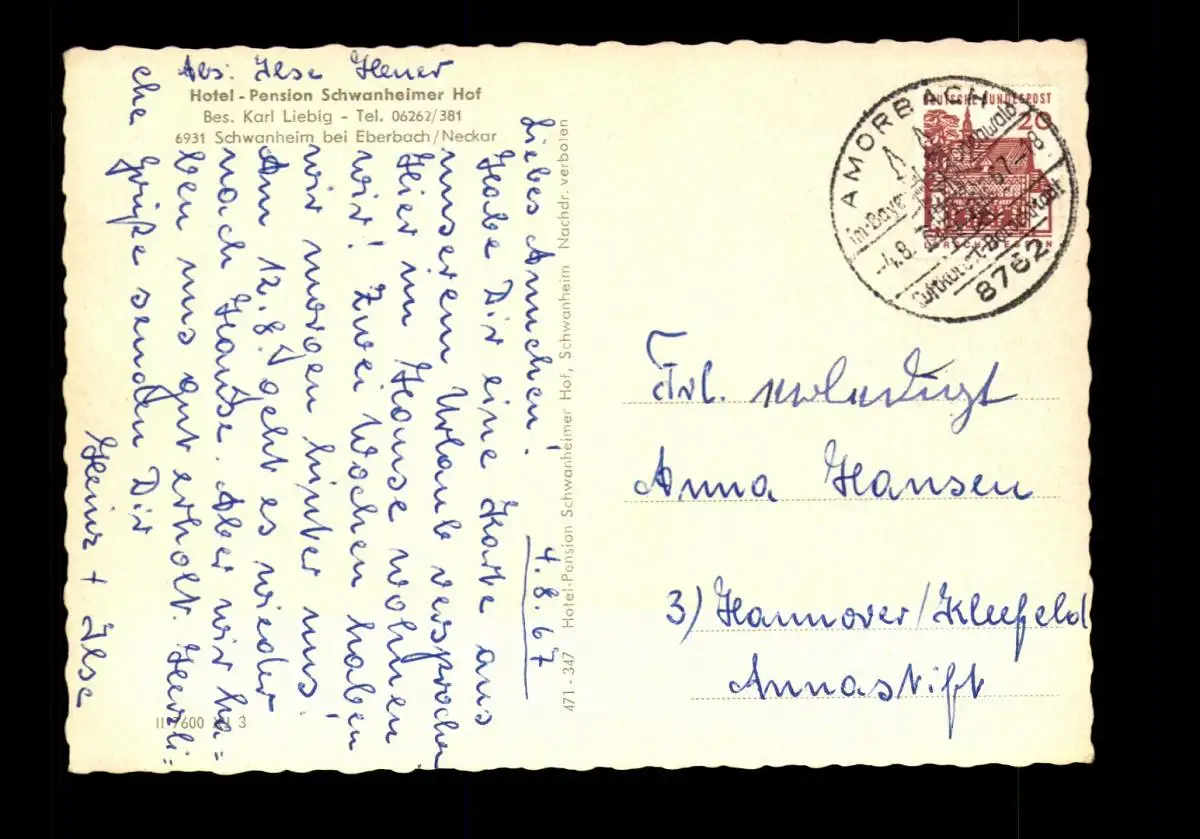 Abs. Ilse Heuer
Hotel - Pension Schwanheimer Hof
Bes. Karl Liebig - Tel. 06262/381
6931 Schwanheim bei Eberbach/Neckar
4.8.67
Liebes Annchen!
Habe Dir eine Karte aus
unserem Urlaub versprochen
Hier im Hause wohnen
wir! Zwei Wochen haben
wir morgen hinter uns.
Am 12.8. geht es wieder
nach Hause. Aber wir ha=
ben uns gut erholt. Herzli=
che Grüße senden Dir
Heinz + Ilse
471 - 347 Hotel-Pension Schwanheimer Hof, Schwanheim Nachdr. verboten
II 7600 3
DEUTSCHE BUNDESPOST
20
AMORBACH
im Bayer. Odenwald
-4.8.67-18
Luftkurort-Barockstadt
8762
Frl.
Anna Hansen
3) Hannover/Kleefeld
Annastift